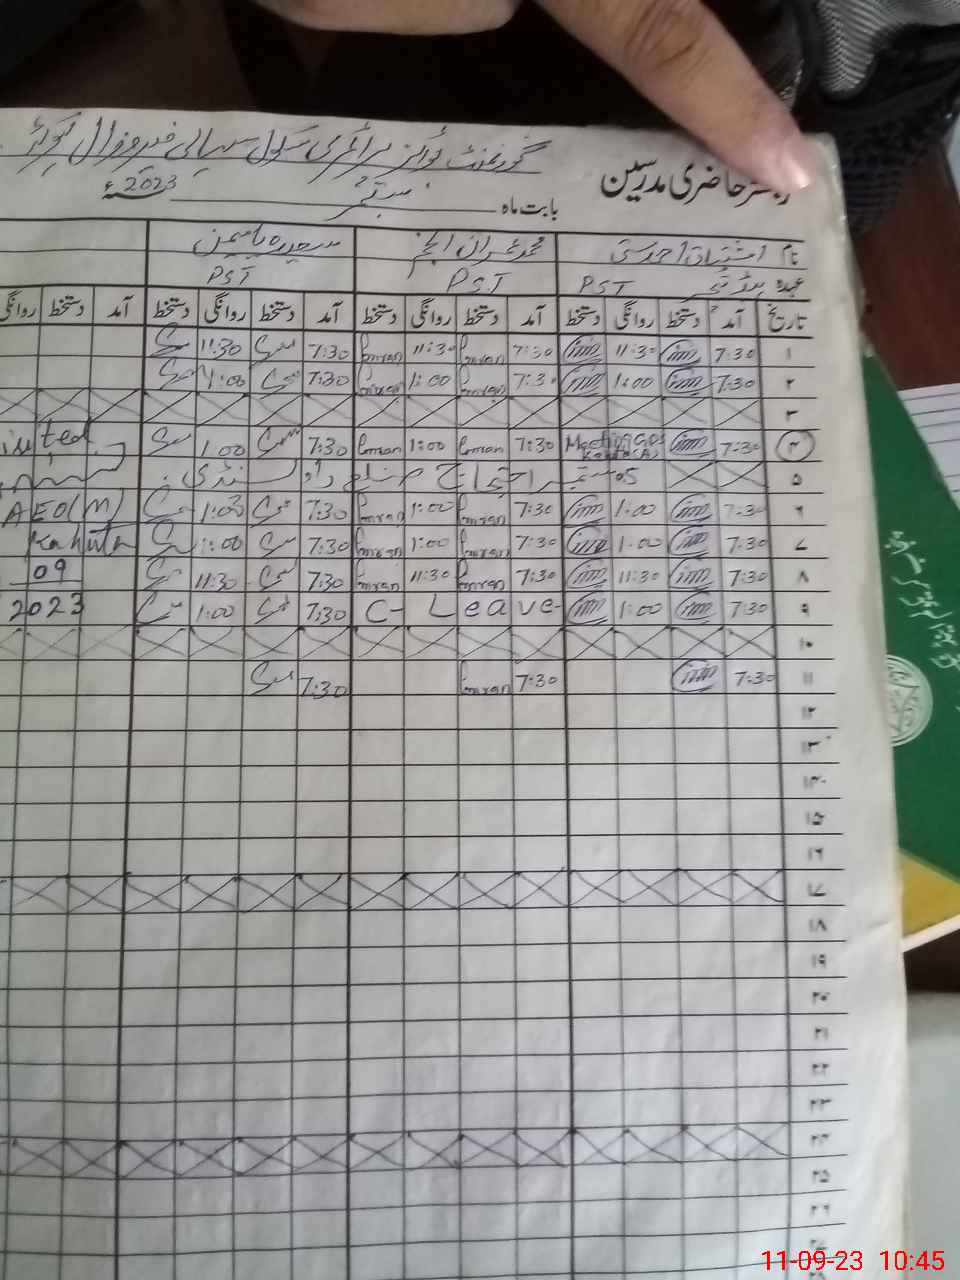 گورنمنٹ بوائز پرائمری سکول سہالی فیروزال
رجسٹر حاضری مدرسین
بابت ماہ ستمبر 2023ء
نام اشتیاق احمد ستی محمد عمران انجم سعیدہ یاسمین
عہدہ ہیڈ ٹیچر PST PST PST
تاریخ آمد دستخط روانگی دستخط آمد دستخط روانگی دستخط آمد دستخط روانگی دستخط آمد دستخط روانگی
۱ 7:30 11:30 7:30 Imran 11:30 Imran 7:30 11:30
۲ 7:30 1:00 7:30 Imran 1:00 Imran 7:30 1:00
۳
۴ 7:30 Meeting GPS Kahuta(A) 7:30 Imran 1:00 Imran 7:30 1:00 isited
۵ 05 ستمبر احتجاج ضلع راولپنڈی
۶ 7:30 1:00 7:30 Imran 1:00 Imran 7:30 1:00 AEO(M)
۷ 7:30 1:00 7:30 Imran 1:00 Imran 7:30 1:00 Kahuta
۸ 7:30 11:30 7:30 Imran 11:30 Imran 7:30 11:30 09
۹ 7:30 1:00 C- Leave 7:30 1:00 2023
۱۰
۱۱ 7:30 7:30 Imran 7:30
۱۲
۱۳
۱۴
۱۵
۱۶
۱۷
۱۸
۱۹
۲۰
۲۱
۲۲
۲۳
۲۴
۲۵
۲۶
۲۷
11-09-23 10:45